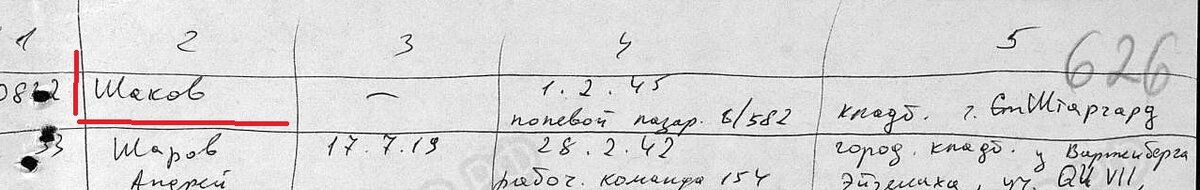 1 2 3 4 5 626
Шаков — 1.2.45
полевой лазар. 8/582 кладб. г. Штаргард
33 Шаров 17.7.19 28.2.42 город. кладб. у
Андрей рабоч. команда 154